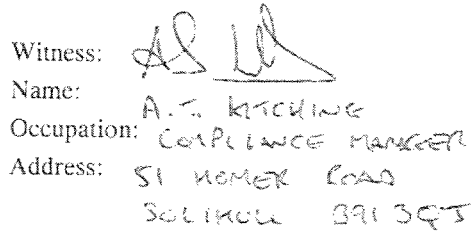 Witness:
Name: A.T. KITCHING
Occupation: COMPLIANCE MANAGER
Address: 51 HOMER ROAD
SOLIHULL B91 3QJ